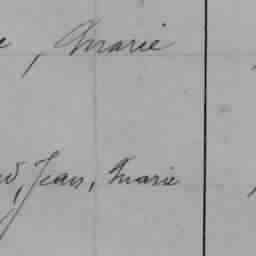 , Marie
, Jean, Marie